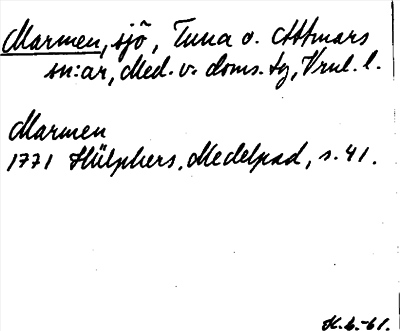 Marmen, sjö, Tuna o. Attmars
sn:ar, Med. v. doms. tg, Vrnl. l.
Marmen
1771 Hülphers, Medelpad, s. 41.
H.b.-61.